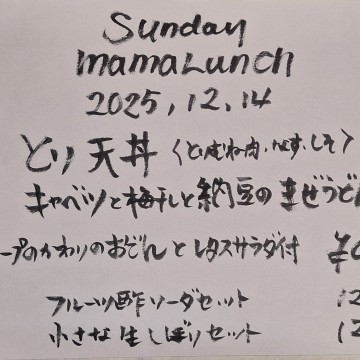 Sunday
mamaLunch
2025,12,14
とり天丼〈とりむね肉・なす・しそ〉
キャベツと梅干しと納豆のまぜうどん
ープのかわりのおでんとレタスサラダ付 ¥
フルーツ酢ソーダセット 12
小さな生しぼりセット 12